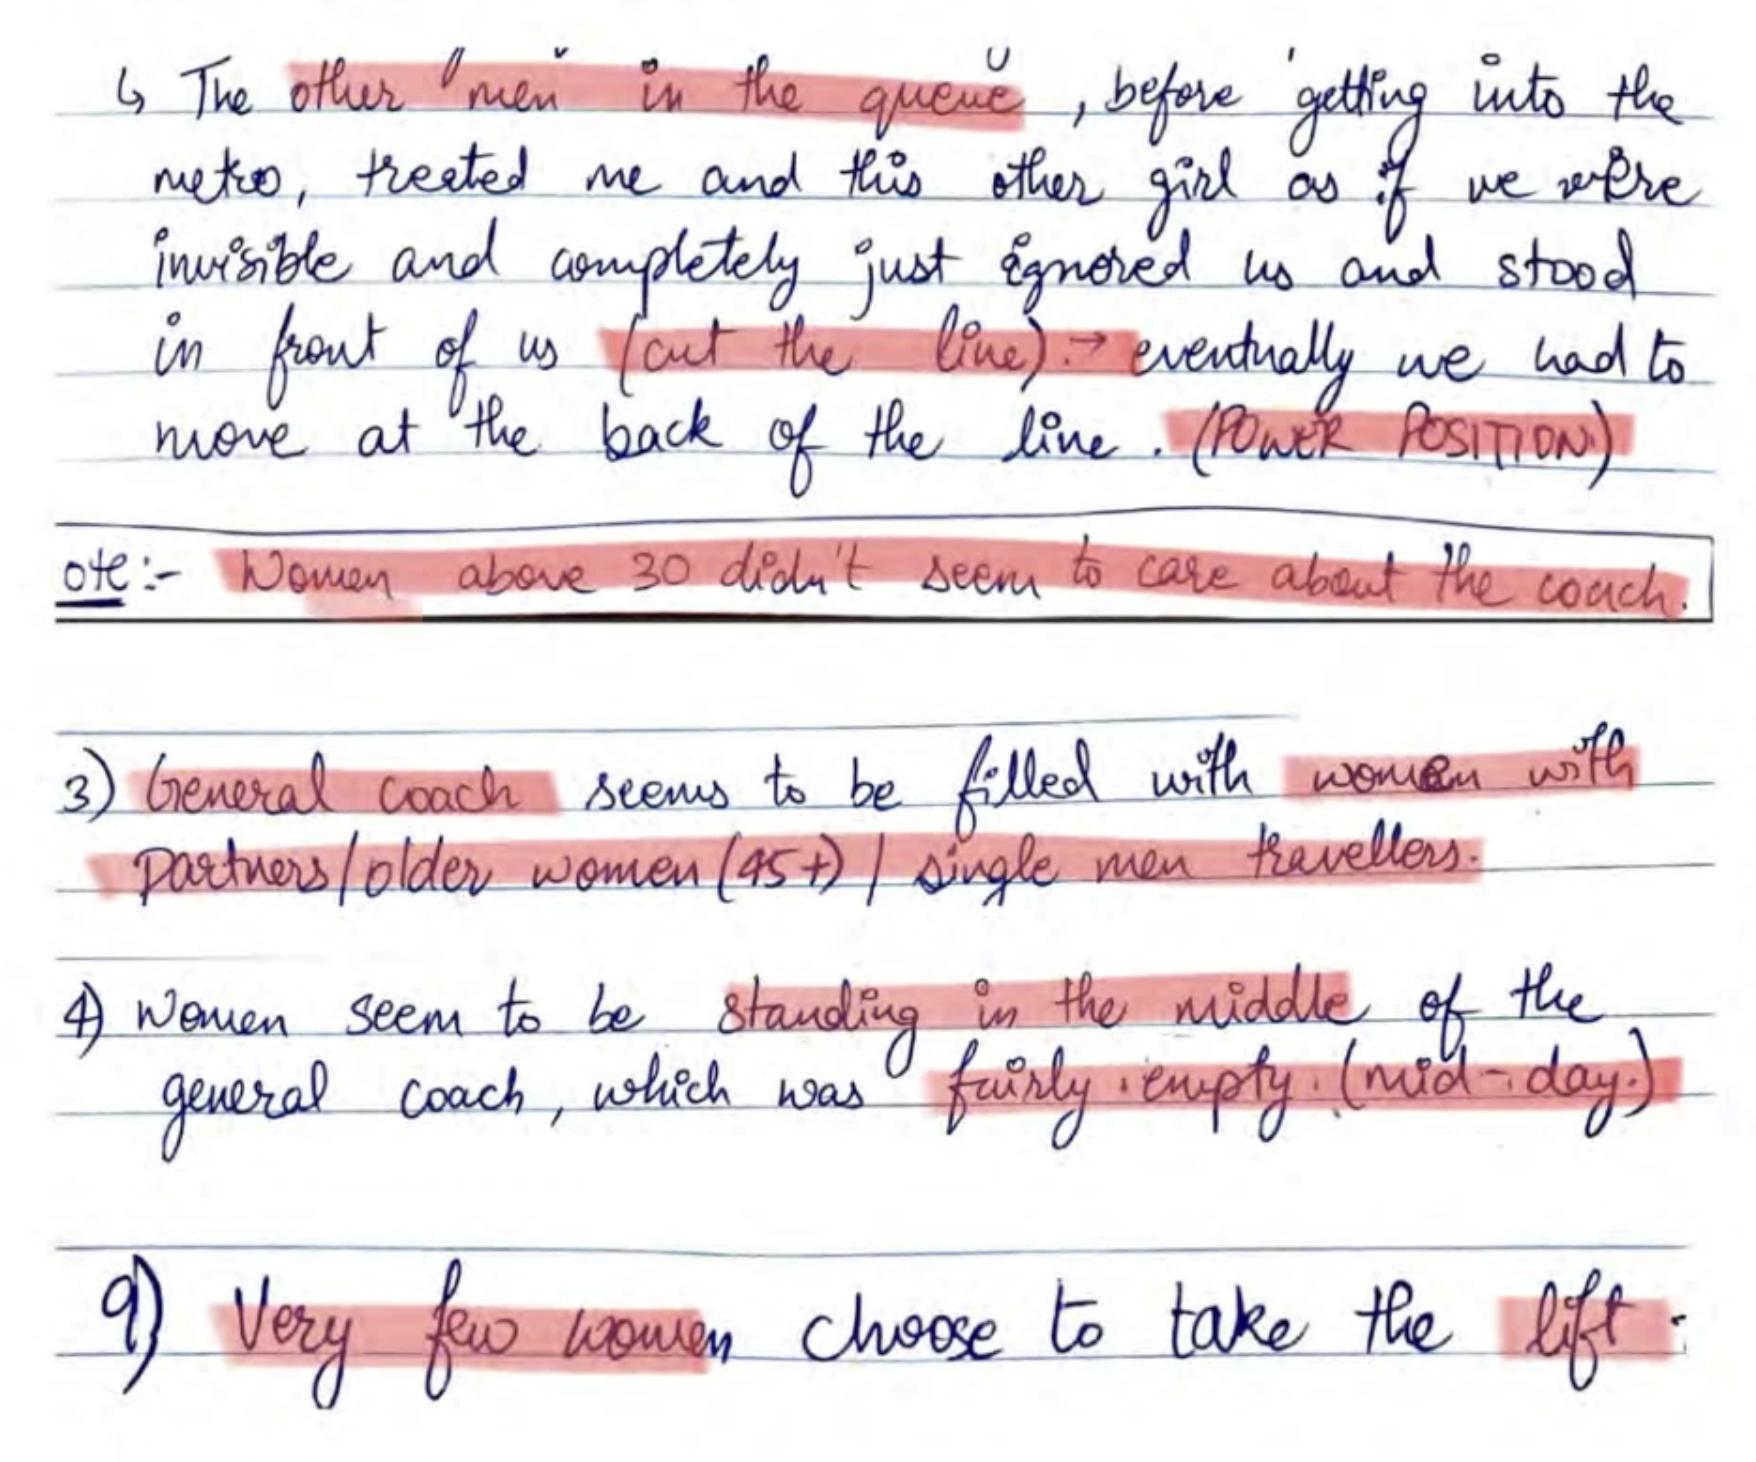 ↳ The other "men" in the queue, before getting into the
metro, treated me and this other girl as if we were
invisible and completely just ignored us and stood
in front of us (cut the line). → eventually we had to
move at the back of the line. (POWER POSITION)
ote:- Women above 30 didn't seem to care about the coach.
3) General coach seems to be filled with women with
Partners/older women (45+) / single men travellers.
4) Women seem to be standing in the middle of the
general coach, which was fairly empty. (mid-day.)
9) Very few women choose to take the lift.